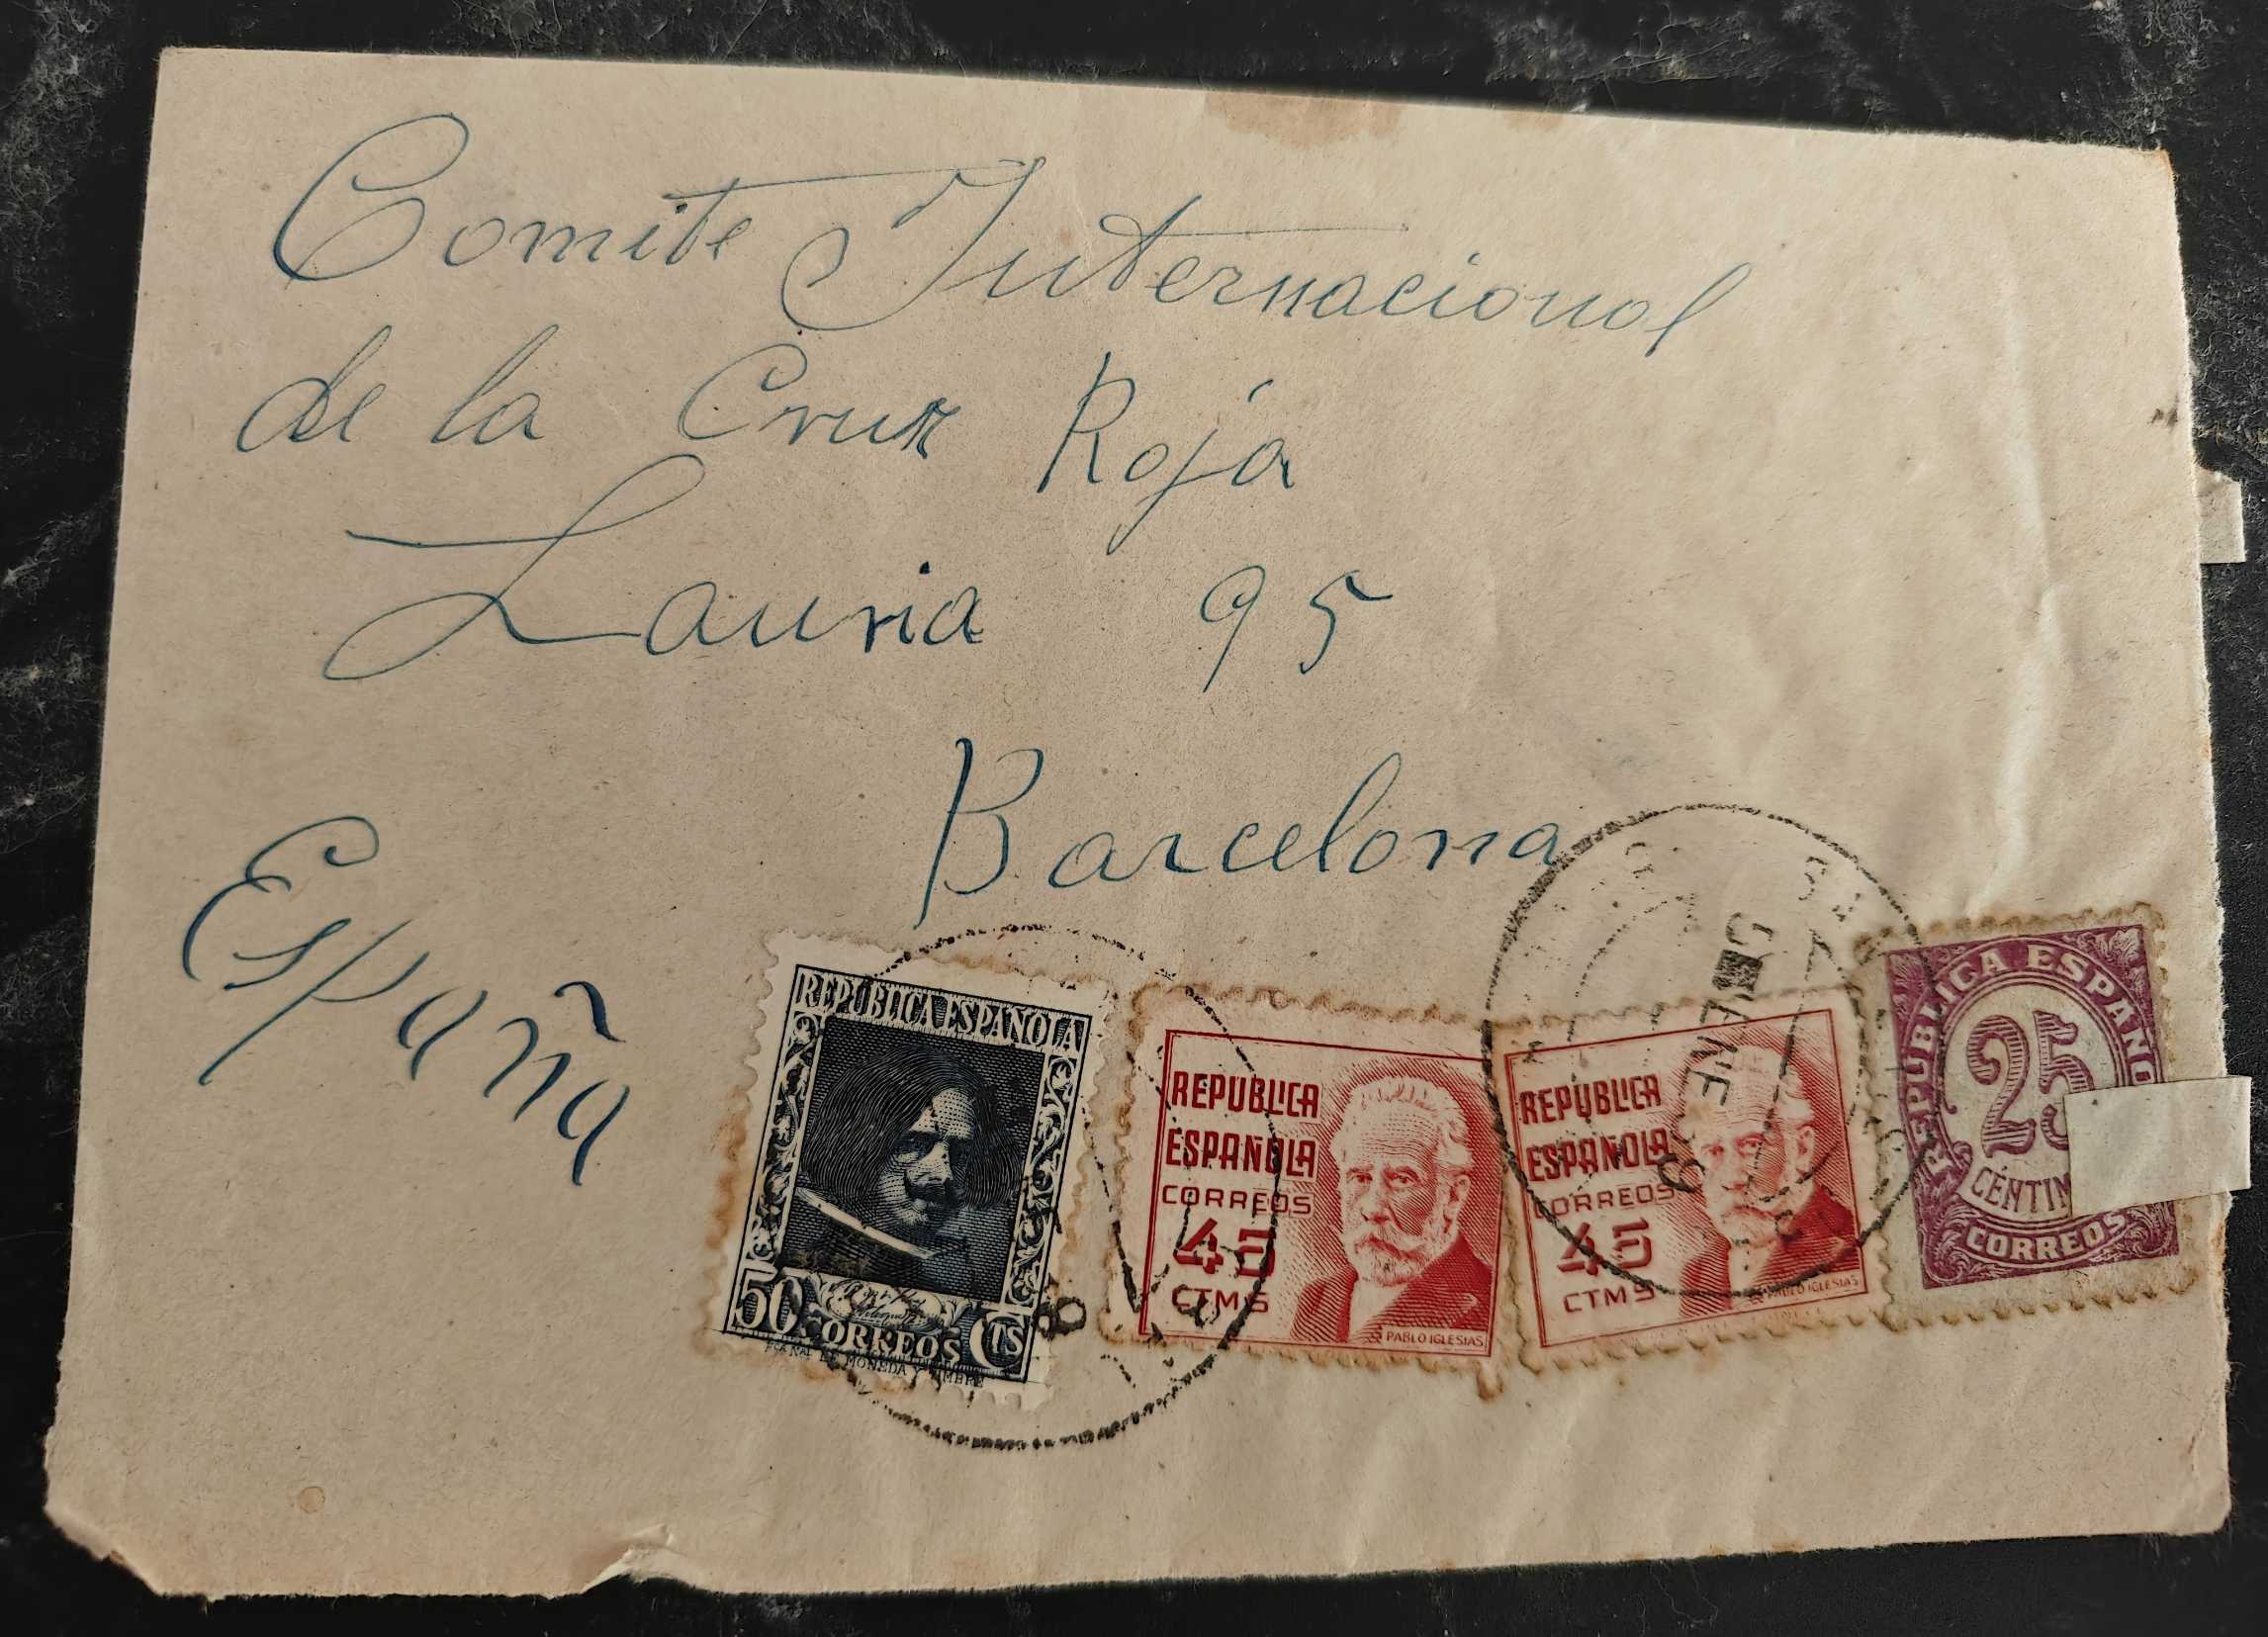 Comite Internacional
de la Cruz Roja
Lauria 95
Barcelona
España
REPUBLICA ESPAÑOLA
50 CORREOS CTS
FCA NAL DE MONEDA Y TIMBRE
REPUBLICA
ESPAÑOLA
CORREOS
45
CTMS
PABLO IGLESIAS
REPUBLICA
ESPAÑOLA
CORREOS
45
CTMS
PABLO IGLESIAS
ENE
REPUBLICA ESPAÑO
25
CÉNTIM
CORREOS